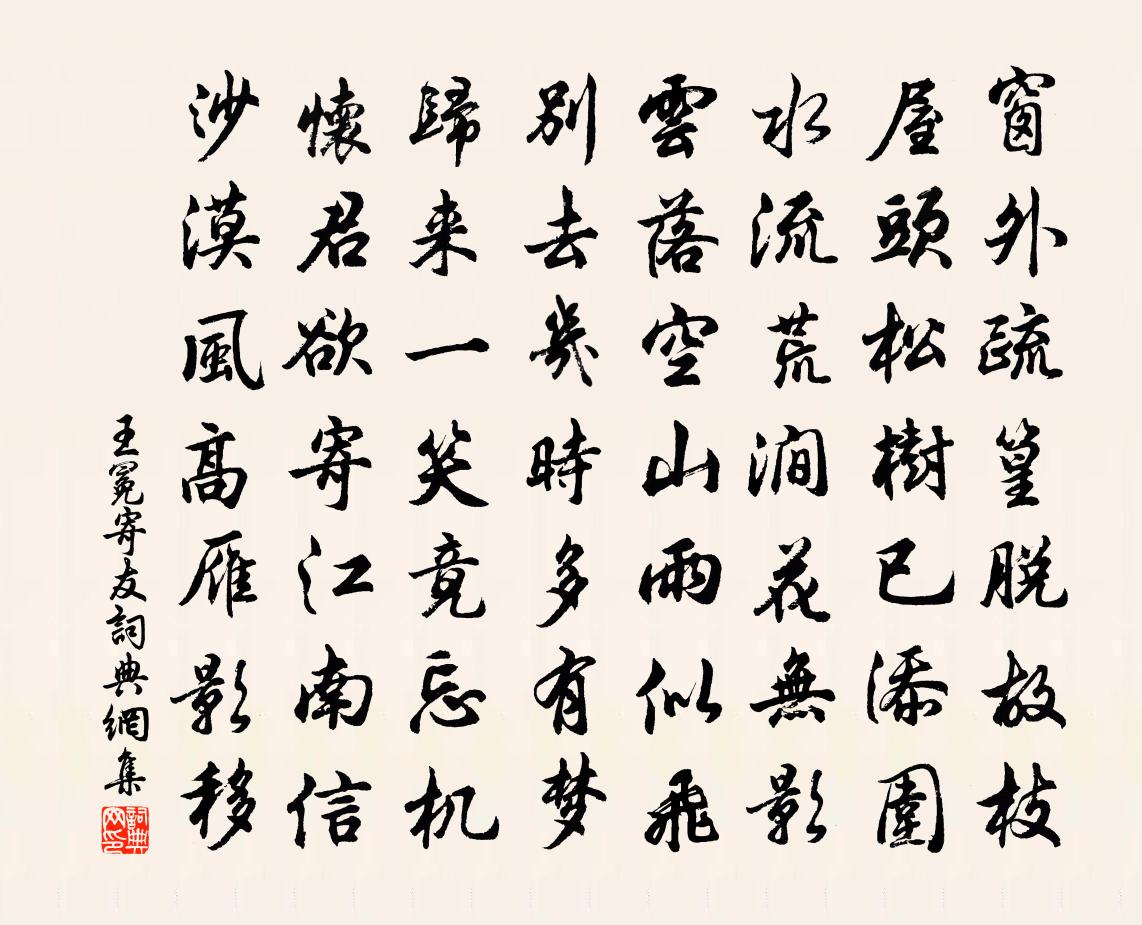 窗外疏篁脱故枝
屋頭松樹已添圍
水流荒澗花無影
雲落空山雨似飛
別去幾時多有梦
歸来一笑竟忘机
懷君欲寄江南信
沙漠風高雁影移
王冕寄友詞典網集
詞典网印